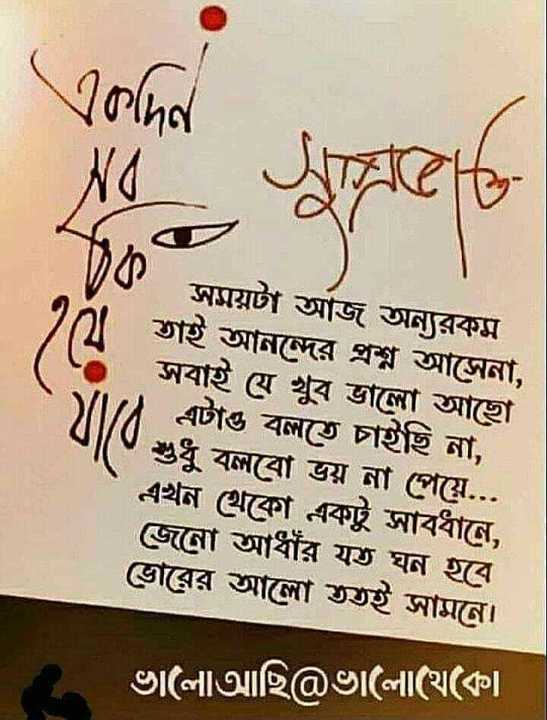 একদিন
সব
ঠিক
হয়ে
যাবে
সুপ্রভাত
সময়টা আজ অন্যরকম
তাই আনন্দের প্রশ্ন আসেনা,
সবাই যে খুব ভালো আছো
এটাও বলতে চাইছি না,
শুধু বলবো ভয় না পেয়ে...
এখন থেকো একটু সাবধানে,
জেনো আধাঁর যত ঘন হবে
ভোরের আলো ততই সামনে।
ভালোআছি@ভালোথেকো।